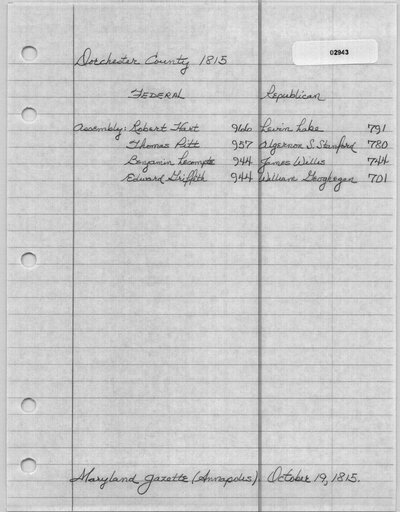 02943
Dorchester County 1815
FEDERAL Republican
Assembly: Robert Hart 960 Levin Lake 791
Thomas Pitt 957 Algernon S. Stanford 780
Benjamin Lecompte 944 James Willis 744
Edward Griffith 944 William Geoghegan 701
Maryland Gazette (Annapolis). October 19, 1815.